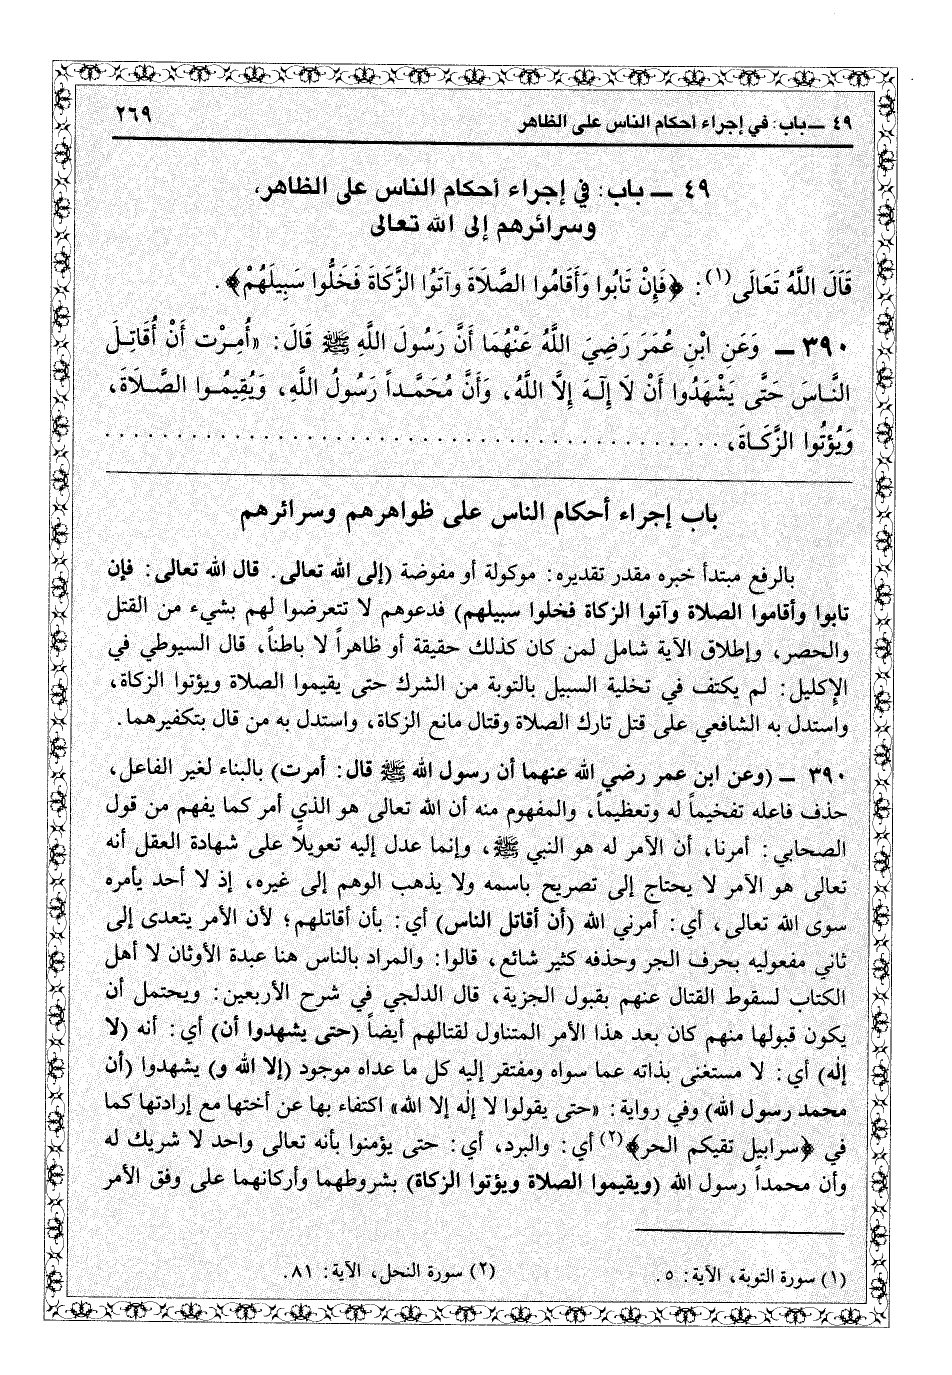 ٤٩ ـ باب: في إجراء أحكام الناس على الظاهر
٢٦٩
٤٩ ـ باب: في إجراء أحكام الناس على الظاهر،
وسرائرهم إلى الله تعالى
قَالَ اللَّهُ تَعَالَى(١): ﴿فَإِنْ تَابُوا وَأَقَامُوا الصَّلَاةَ وآتَوُا الزَّكَاةَ فَخَلُّوا سَبِيلَهُمْ﴾.
٣٩٠ ـ وَعَنِ ابْنِ عُمَرَ رَضِيَ اللَّهُ عَنْهُمَا أَنَّ رَسُولَ اللَّهِ ﷺ قَالَ: «أُمِرْت أَنْ أُقَاتِلَ
النَّاسَ حَتَّى يَشْهَدُوا أَنْ لَا إِلَـهَ إِلَّا اللَّهُ، وَأَنَّ مُحَمَّداً رَسُولُ اللَّهِ، وَيُقِيمُوا الصَّلَاةَ،
وَيُؤْتُوا الزَّكَاةَ، . . . . . . . . . . . . . . . . . . . . . . . . . . . . . . . . . . . . . . . .
باب إجراء أحكام الناس على ظواهرهم وسرائرهم
بالرفع مبتدأ خبره مقدر تقديره: موكولة أو مفوضة (إلى الله تعالى. قال الله تعالى: فإن
تابوا وأقاموا الصلاة وآتوا الزكاة فخلوا سبيلهم) فدعوهم لا تتعرضوا لهم بشيء من القتل
والحصر، وإطلاق الآية شامل لمن كان كذلك حقيقة أو ظاهراً لا باطناً، قال السيوطي في
الإكليل: لم يكتف في تخلية السبيل بالتوبة من الشرك حتى يقيموا الصلاة ويؤتوا الزكاة،
واستدل به الشافعي على قتل تارك الصلاة وقتال مانع الزكاة، واستدل به من قال بتكفيرهما.
٣٩٠ ـ (وعن ابن عمر رضي الله عنهما أن رسول الله ﷺ قال: أمرت) بالبناء لغير الفاعل،
حذف فاعله تفخيماً له وتعظيماً، والمفهوم منه أن الله تعالى هو الذي أمر كما يفهم من قول
الصحابي: أمرنا، أن الآمر له هو النبي ﷺ، وإنما عدل إليه تعويلاً على شهادة العقل أنه
تعالى هو الآمر لا يحتاج إلى تصريح باسمه ولا يذهب الوهم إلى غيره، إذ لا أحد يأمره
سوى الله تعالى، أي: أمرني الله (أن أقاتل الناس) أي: بأن أقاتلهم؛ لأن الأمر يتعدى إلى
ثاني مفعوليه بحرف الجر وحذفه كثير شائع، قالوا: والمراد بالناس هنا عبدة الأوثان لا أهل
الكتاب لسقوط القتال عنهم بقبول الجزية، قال الدلجي في شرح الأربعين: ويحتمل أن
يكون قبولها منهم كان بعد هذا الأمر المتناول لقتالهم أيضاً (حتى يشهدوا أن) أي: أنه (لا
إلٰه) أي: لا مستغنى بذاته عما سواه ومفتقر إليه كل ما عداه موجود (إلا الله و) يشهدوا (أن
محمد رسول الله) وفي رواية: «حتى يقولوا لا إلٰه إلا الله» اكتفاء بها عن أختها مع إرادتها كما
في ﴿سرابيل تقيكم الحر﴾(٢) أي: والبرد، أي: حتى يؤمنوا بأنه تعالى واحد لا شريك له
وأن محمداً رسول الله (ويقيموا الصلاة ويؤتوا الزكاة) بشروطهما وأركانهما على وفق الأمر
(١) سورة التوبة، الآية: ٥.
(٢) سورة النحل، الآية: ٨١.